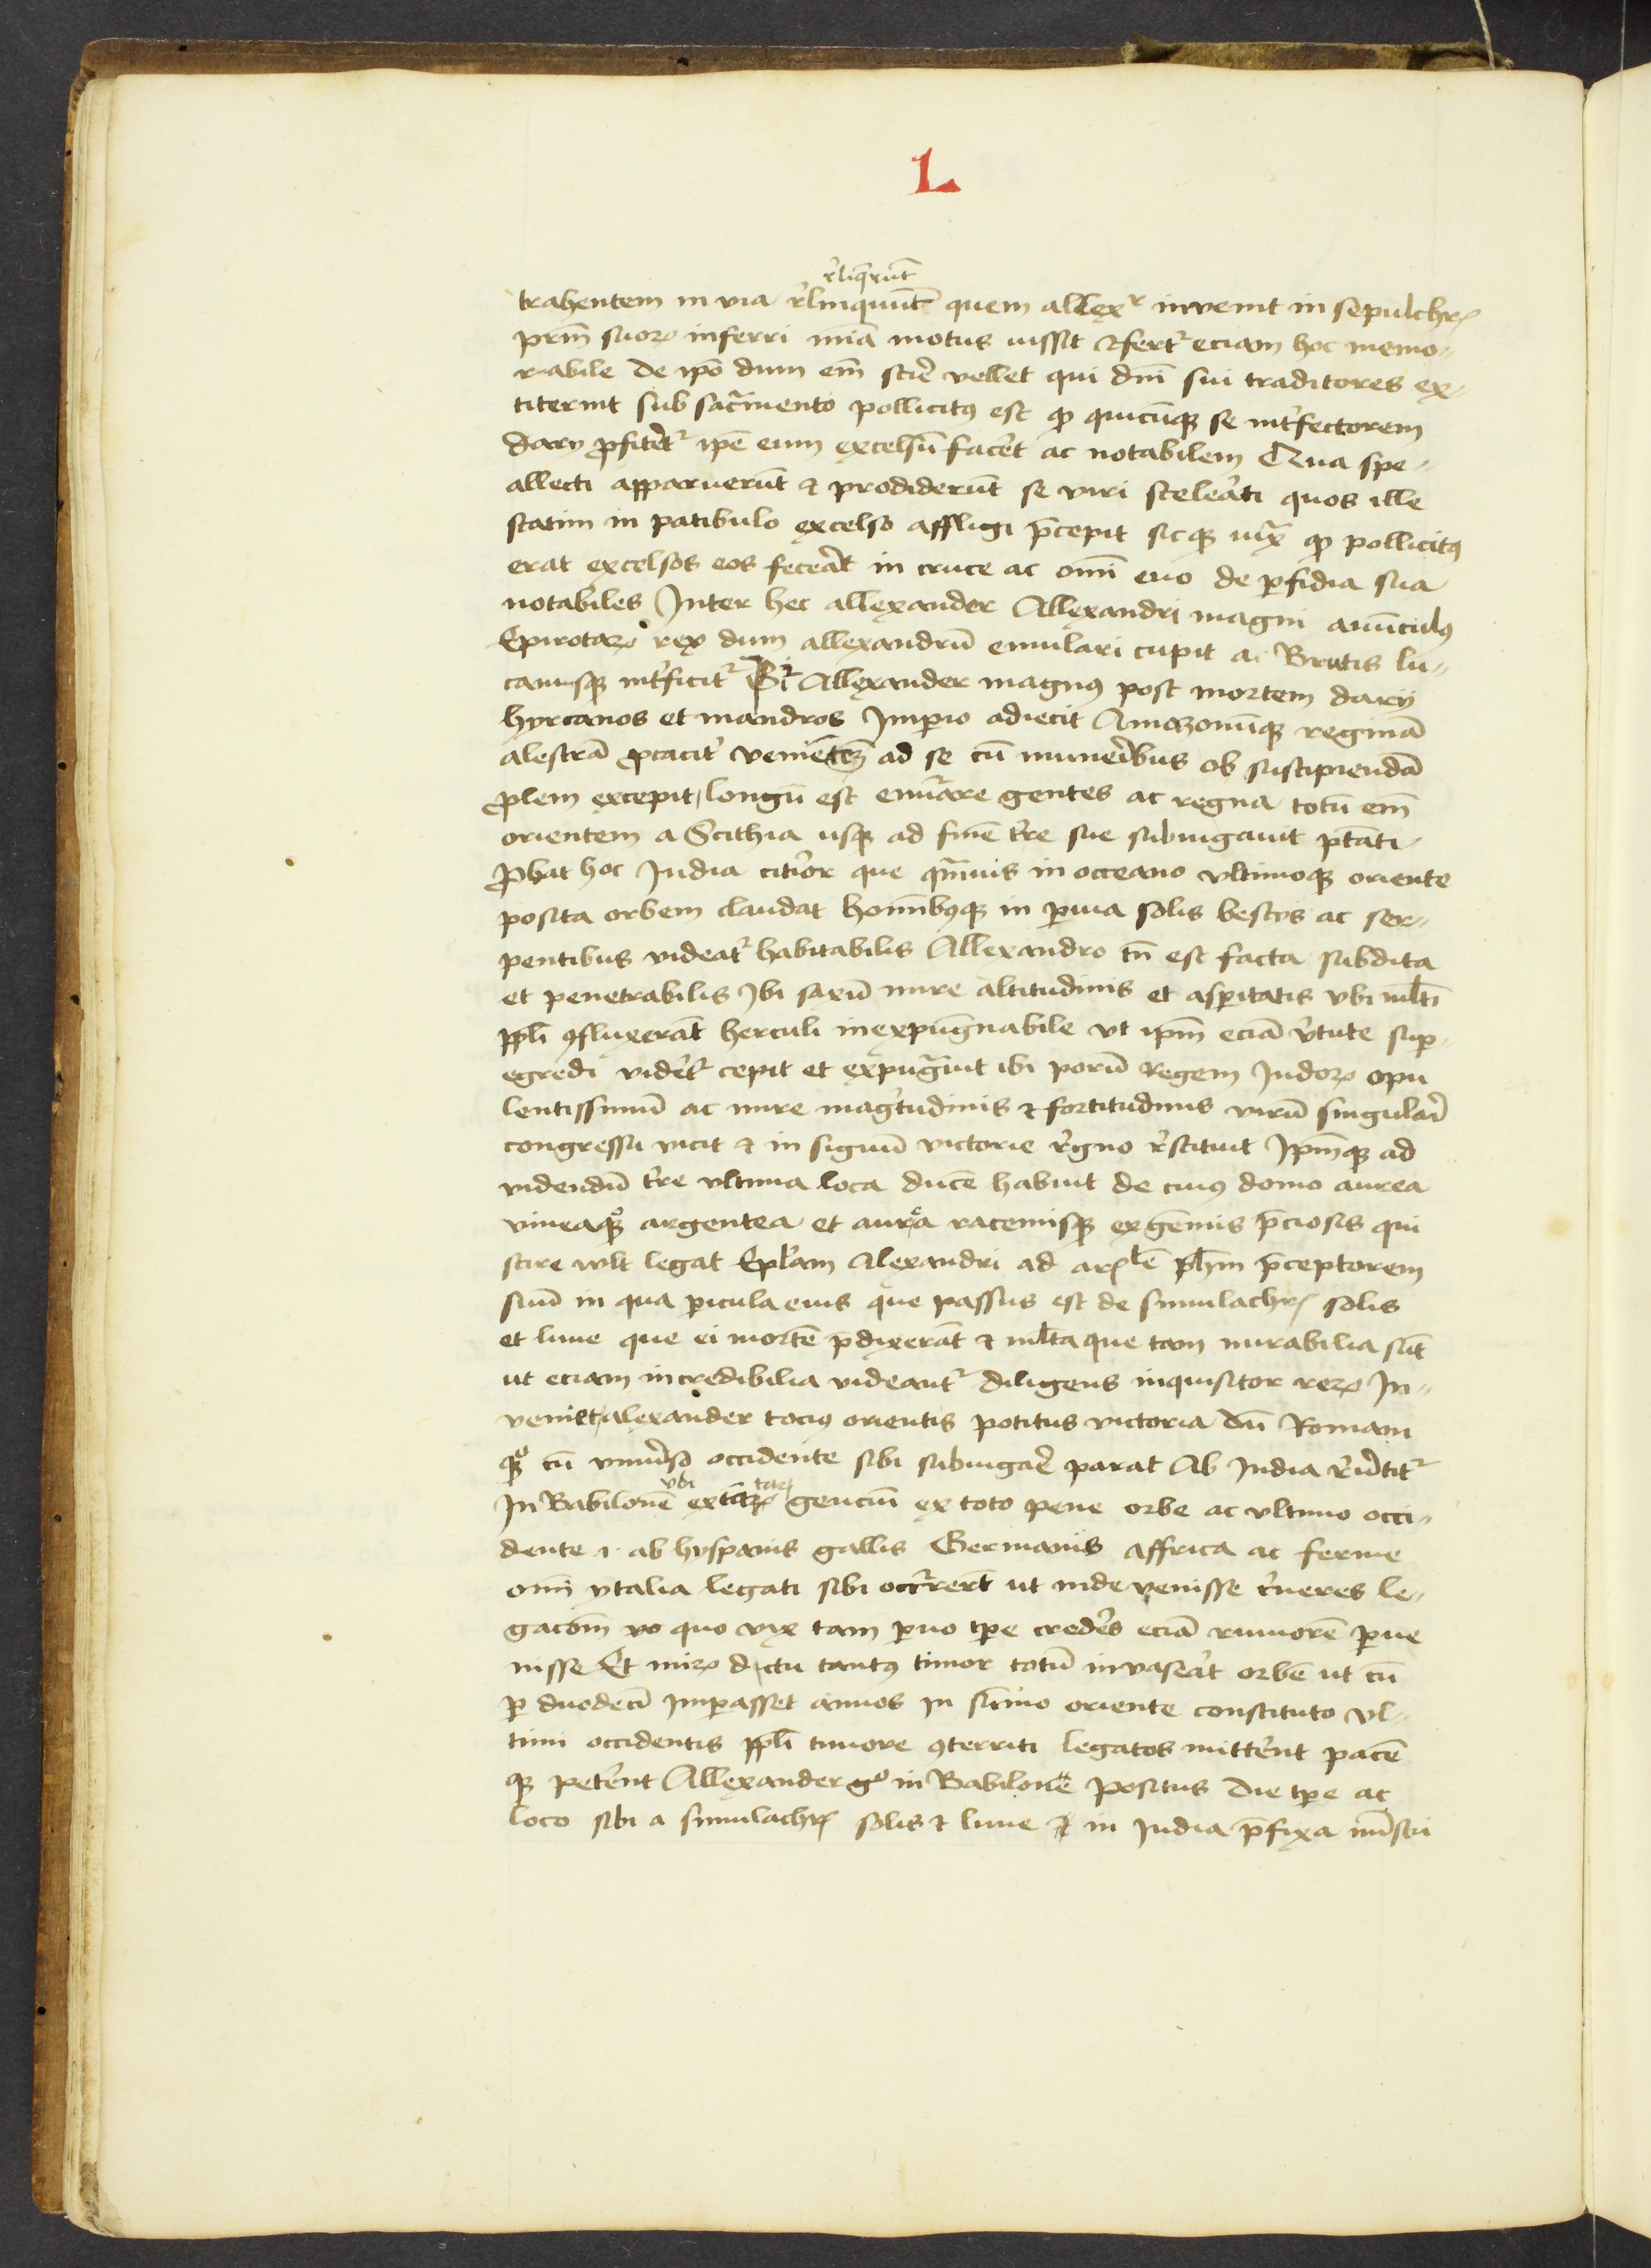 L
r̓liq̄runt
trahentem in via r̓linquunt quem allexr invenit in sepulchrꝭ
prm̄ suoꝝ inferri mīa motus iussit ⁊ fert᷑ eciam hoc memo-
rabile de ip̄o dum em̄ scir̄e vellet qui dn̄i sui traditores ex-
titerint sub sacr̄mento pollicitꝰ est ꝙ quicūqꝫ se int̓fectorem
dary ꝓfiteret᷑ ip̄e eum excelsū facer̄t ac notabilem Qua spe-
allecti apparuerūt ⁊ prodiderūt se viri sceler̄ati quos ille
statim in patibulo excelso affligi p̄cepit sicqꝫ iux̄ ꝙ pollicitꝰ
erat excelsos eos fecer̄at in cruce ac om̄i euo de ꝑfidia sua
notabiles Inter hec allexander Allexandri magni auūculꝰ
Epirotaꝝ rex dum allexandrū emulari cupit a Brutis lu-
canisqꝫ int̓ficit᷑ Allexander magnꝰ post mortem darij
hyrcanos et mandros Imperio adiecit Amazonūqꝫ reginā
alestrā ꝓcacit̓ ad se cū muner̄ibus ob suscipiendā
ꝓlem excepit, longū est enur̄are gentes ac regna totū em̄
orientem a Scithia usqꝫ ad finē t̓re sue subiugauit ptāti
Ꝓbat hoc India citior̓ que qmūis in occeano vltimoqꝫ oriente
posita orbem claudat homībꝰqꝫ in ꝑuia solis bestijs ac ser-
pentibus videat᷑ habitabilis Allexandro tn̄ est facta subdita
et penetrabilis Ibi saxū mire altitudinis et asꝑitatis vbi ml̄ti
ppl̄i ꝯfluxerāt herculi inexpugnabile vt ip̄m eciā v̓tute suꝑ-
egredi vider̄et᷑ cepit et expugn̄uit ibi porū Regem Indoꝝ opu
lentissimū ac mire mag̓tudinis ⁊ fortitudinis virū singulari̓
congressu vicit ⁊ in signū victorie r̓gno r̓stituit Ip̄mqꝫ ad
videndū t̓re vltima loca ducē habuit de cuiꝰ domo aurea
vineaqꝫ argentea et aurea racemisqꝫ ex gēmis p̄ciosis qui
scire vult legat Epl̓am Alexandri ad arꝭlē ph̄m p̄ceptorem
suū in qua ꝑicula eius que passus est de simulachrꝭ solis
et lune que ei mortē p̄dixerāt ⁊ ml̄ta que tam mirabilia sūt
ut eciam incredibilia videant᷑ diligens inquisitor reꝝ In-
veniet, alexander tociꝰ orientis potitus victoria dū Romam
qꝫ cū vniuer̄so occidente sibi subiugar̄e parat Ab India r̓uer̄tit᷑
vbi
In Babilonē gencium ex toto pene orbe ac vltimo occi-
dente ⁊ ab hyspanis gallis Germanis affrica ac ferme
om̄i ytalia legati sibi occurrer̄t ut inde venisse cr̓neres le-
gacōm vo quo vix tam ꝑuo tp̄e creder̄s eciā rumorē ꝑue
nisse Et miꝝ dictu tantꝰ timor totū invaser̄at orbē ut cū
ꝑ duodeci Imꝑasset annos in sūmo oriente constituto vl-
timi occidentis ppl̄i timore ꝯterriti legatos mitter̄ent pacē
qꝫ peter̄ent Allexander gͦ in Babilone positus die tp̄e ac
loco sibi a simulachrꝭ solis ⁊ lune in India p̄fixa